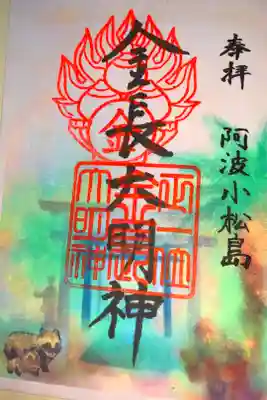 奉拝
阿波小松島
金長大明神
正一位
金長
大明神